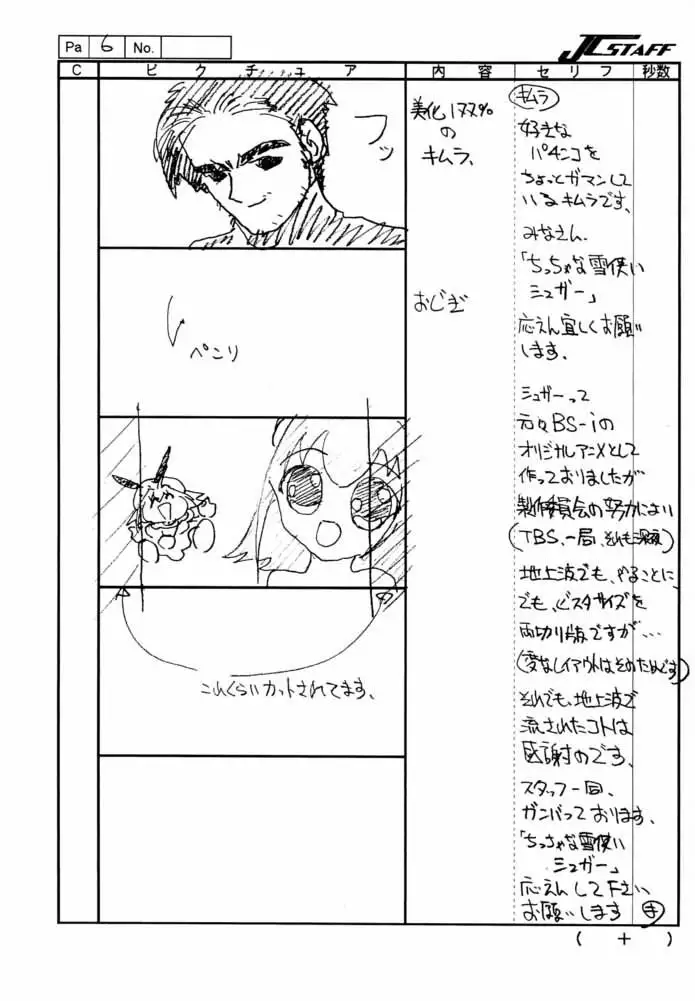 Pa 6 No.
JC STAFF
C ピクチュア 内容 セリフ 秒数
フッ
美化177%
の
キムラ、
キムラ
好きな
パチンコを
ちょっとガマンして
いるキムラです、
みなさん、
「ちっちゃな雪使い
シュガー」
応えん宜しくお願い
します、
ペこり
おじぎ
シュガーって
元々BS-iの
オリジナルアニメとして
作っておりましたが
製作委員会の努力により
(TBS、一局、それも深夜)
地上波でも、やることに、
でも、ビスタサイズを
両切り版ですが…
(変なレイアウトはそのためです)
これくらいカットされてます、
それでも、地上波で
流されたコトは
感謝のです、
スタッフ一同、
ガンバっております、
「ちっちゃな雪使い
シュガー」
応えんして下さい
お願いします
( + )